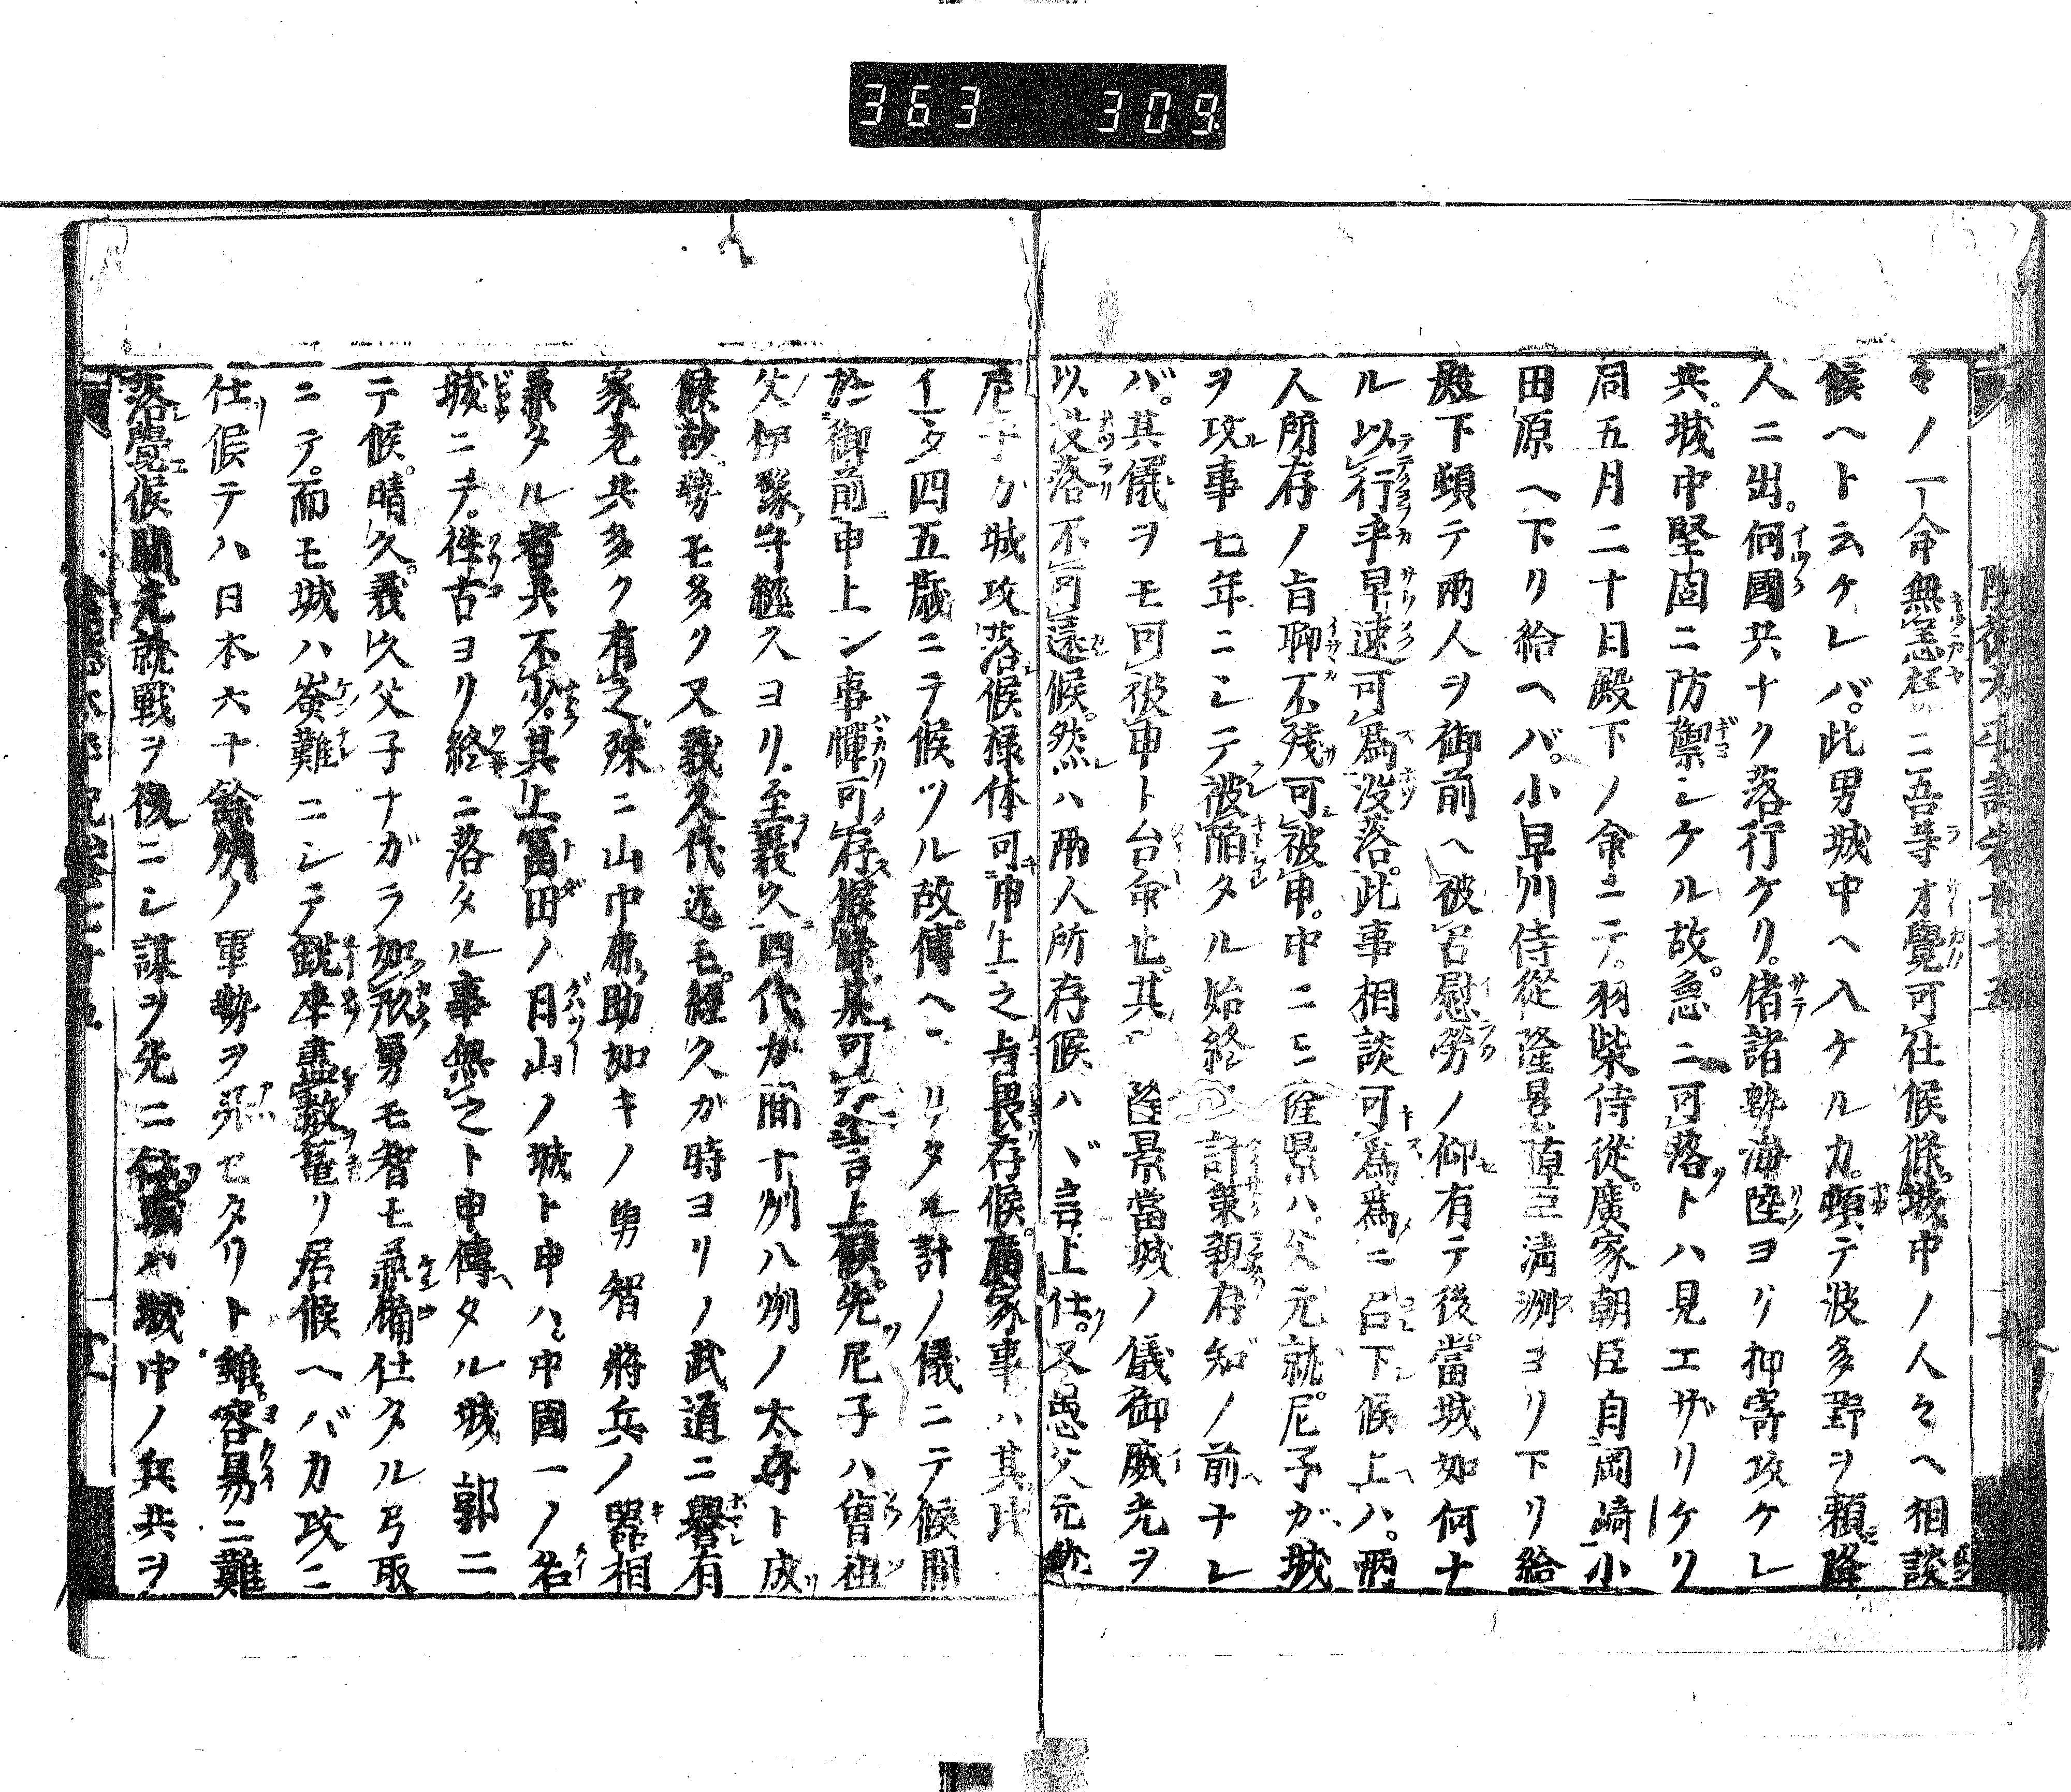 363 309
々ノ一命無恙様ニ吾等才覺可仕候條城中ノ人々ヘ相談
候ヘト云ケレバ。此男城中ヘ入ケルカ。頓テ波多野ヲ頼降
人ニ出。何國共ナク落行ケリ。偖諸勢海陸ヨリ押寄攻ケレ
共。城中堅固ニ防禦シケル故。急ニ可落トハ見エザリケリ
同五月二十日殿下ノ命ニテ。羽柴侍從廣家朝臣自岡崎小
田原ヘ下リ給ヘバ。小早川侍從隆景モ清洲ヨリ下リ給
殿下頓テ兩人ヲ御前ヘ被召慰勞ノ仰有テ後。當城如何ナ
ル以行乎早速可為没落。此事相談可為為ニ召下候上ハ。兩
人所存ノ旨聊不残可被申。中ニモ隆景ハ。父元就。尼子ガ城
ヲ攻事七年ニシテ被陥タル始終ノ計策親存知ノ前ナレ
バ。其儀ヲモ可被申ト台命也。其 隆景當城ノ儀御威光ヲ
以没落不可遠候。然ハ兩人所存候ハヾ言上仕。又愚父元就
尼子ガ城攻落候様体可申上之旨畏存候。廣家事ハ其比
イマタ四五歳ニテ候ツル故。傳ヘ リタル計ノ儀ニテ候間
於御前申上ン事憚可存候條某可令言上候。先尼子ハ曽祖
父伊豫守經久ヨリ。至義久四代ガ間十州八州ノ太守ト成
候故勢モ多ク又義久代迄モ。經久ガ時ヨリノ武道ニ譽有
家老共多ク有之殊ニ山中鹿助如キノ勇智將兵ノ器相
兼タル者共不少。其上冨田ノ月山ノ城ト申ハ。中國一ノ名
城ニテ。往古ヨリ終ニ落タル事無之ト申傳タル城郭ニ
テ候。晴久。義久父子ナガラ如形勇モ智モ兼備仕タル弓取
ニテ。而モ城ハ嶮難ニシテ鋭卒盡數篭リ居候ヘバカ攻ニ
仕候テハ日本六十餘州ノ軍勢ヲ合セタリト雖。容易ニ難
落覺候間。元就戰ヲ後ニシ謀ヲ先ニ仕。 ハ城中ノ兵共ヲ